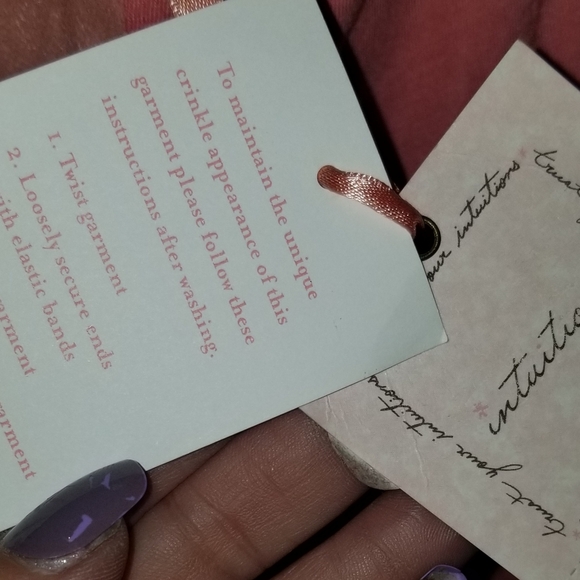 To maintain the unique
crinkle appearance of this
garment please follow these
instructions after washing.
1. Twist garment
2. Loosely secure ends
with elastic bands
garment
garment
trust
your intuitions
intuitio
trust your intuitions